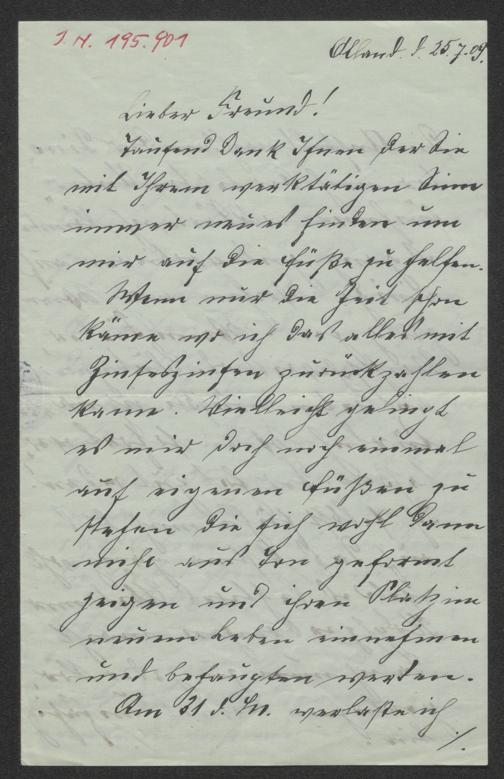 I. N. 195.901
Alland. d. 25.7.09.
Lieber Freund!
Tausend Dank Ihnen der Sie
mit Ihrem werktätigen Sinn
immer neues finden um
mir auf die Füße zu helfen.
Wenn nur die Zeit schon
käme wo ich das alles mit
Zinseszinsen zurückzahlen
kann. Vielleicht gelingt
es mir doch noch einmal
auf eigenen Füßen zu
stehen die sich wohl dann
nicht aus Ton geformt
zeigen und ihren Platz im
neuem Leben einnehmen
und behaupten werden.
Am 31 d. M. verlasse ich
./.